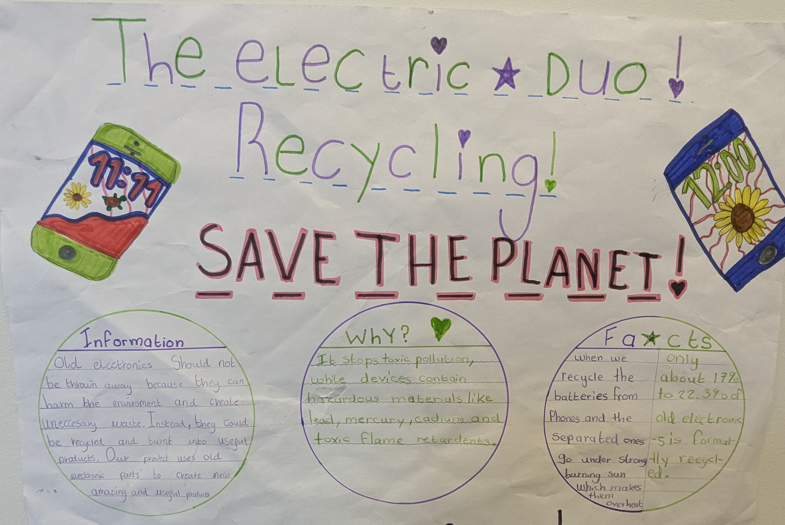 The eLectric ★ DUO!
Recycling!
SAVE THE PLANET!
11:11
12:00
Information
Old electronics Should not
be thrown away because they can
harm the enviroment and create
unneccesary waste. Instead, they could
be recycled and turnt into useful
products. Our project uses old
electronic parts to create new
amazing and useful products
WhY?
It stops toxic pollution,
while devices contain
hazardous materials like
lead, mercury, cadium and
toxic flame retardents.
Fa★cts
when we
recycle the
batteries from
Phones and the
separated ones
go under strong
burning sun
which makes
them
overheat
only
about 17%
to 22.3% of
old electronic
-s is formal-
tly recycl-
ed.